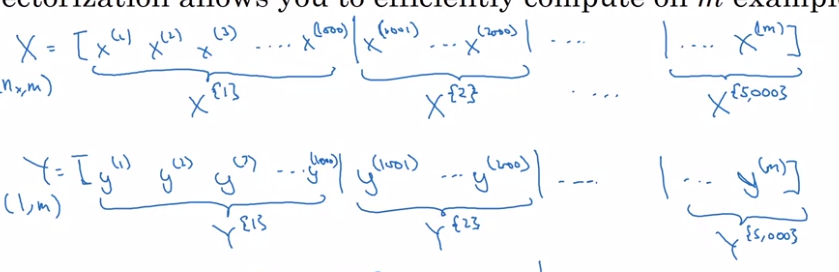 ectorization allows you to efficiently compute on m example
X = [x^(1) x^(2) x^(3) .... x^(1000) | x^(1001) ... x^(2000) | .... | .... x^(m)]
(n_x, m) X^{1} X^{2} .... X^{5,000}
Y = [y^(1) y^(2) y^(3) ... y^(1000) | y^(1001) ... y^(2000) | .... | ... y^(m)]
(1, m) Y^{1} Y^{2} Y^{5,000}